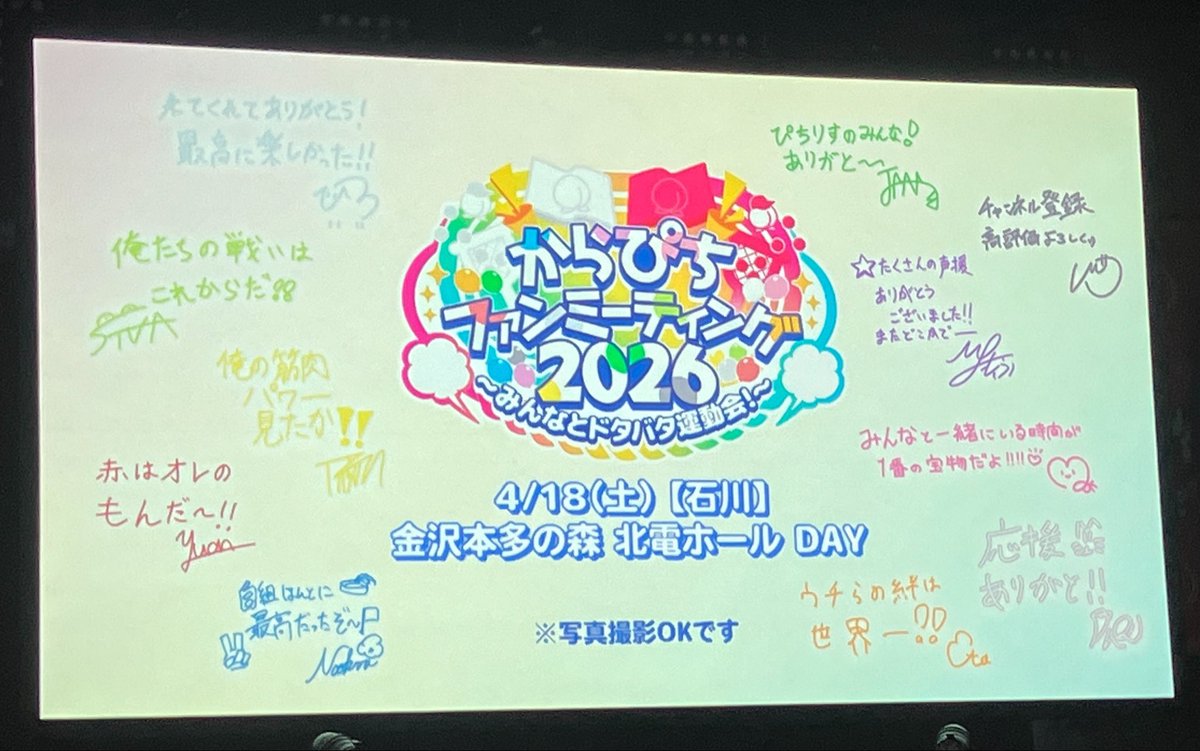 からぴち
ファンミーティング
2026
～みんなとドタバタ運動会!～
4/18(土)【石川】
金沢本多の森 北電ホール DAY
※写真撮影OKです
来てくれてありがとう!
最高に楽しかった!!
俺たちの戦いは
これからだ!!
俺の筋肉
パワー
見たか!!
赤はオレの
もんだ〜!!
Yuan
最高だったぞ〜
ぴちりすのみんな!
ありがと〜
チャンネル登録
高評価よろしく
☆たくさんの声援
ありがとう
ございました!!
みんなと一緒にいる時間が
1番の宝物だよ!!!!
応援
ありがと!!
ウチらの絆は
世界一!!